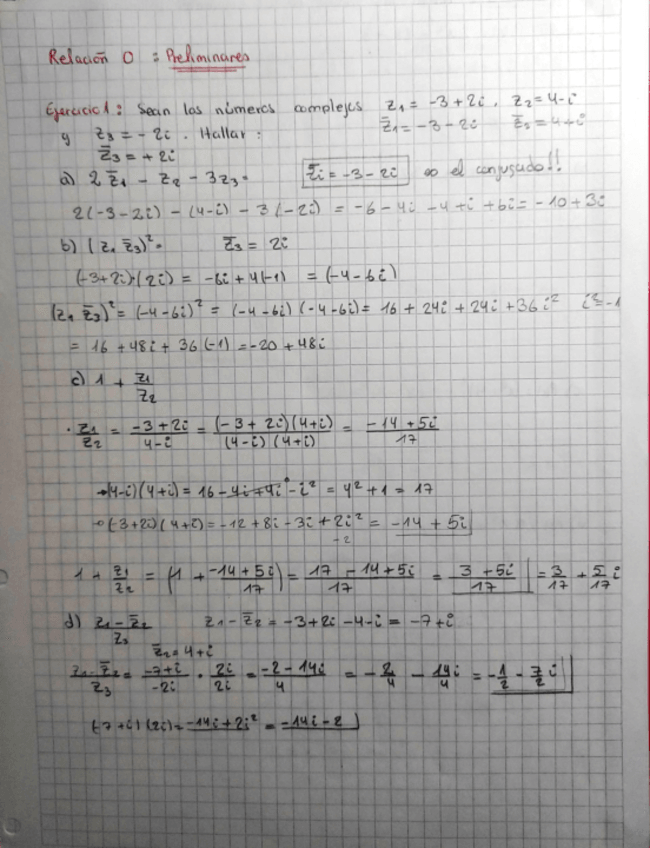 Relación 0 : Preliminares
Ejercicio 1: Sean los números complejos z₁ = -3+2i, z₂ = 4-i
z̄₁ = -3-2i z̄₂ = 4+i
y z₃ = -2i. Hallar:
z̄₃ = +2i
a) 2z̄₁ - z₂ - 3z₃ = z̄₁ = -3-2i el conjugado!!
2(-3-2i) - (4-i) - 3(-2i) = -6-4i-4+i+6i = -10+3i
b) (z₁ z̄₃)² = z̄₃ = 2i
(-3+2i)·(2i) = -6i+4(-1) = (-4-6i)
(z₁ z̄₃)² = (-4-6i)² = (-4-6i)(-4-6i) = 16+24i+24i+36i² i²=-1
= 16+48i+36(-1) = -20+48i
c) 1 + z₁/z₂
· z₁/z₂ = (-3+2i)/(4-i) = (-3+2i)(4+i)/(4-i)(4+i) = (-14+5i)/17
→(4-i)(4+i) = 16-4i+4i-i² = 4²+1 = 17
→(-3+2i)(4+i) = -12+8i-3i+2i² = -14+5i
-2
1 + z₁/z₂ = (1 + (-14+5i)/17) = (17-14+5i)/17 = (3+5i)/17 = 3/17 + 5/17 i
d) (z₁-z̄₂)/z₃ z₁-z̄₂ = -3+2i-4-i = -7+i
z̄₂ = 4+i
(z₁-z̄₂)/z₃ = (-7+i)/(-2i) · 2i/2i = (-2-14i)/4 = -2/4 - 14i/4 = -1/2 - 7/2 i
(-7+i)(2i) = -14i+2i² = -14i-2